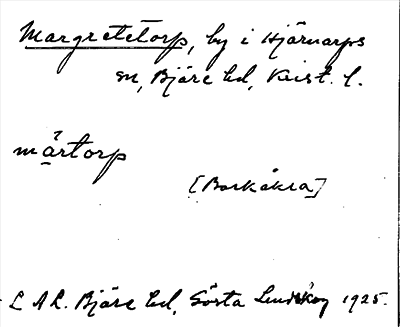 Margretetorp, by i Hjärnarps
sn, Bjäre hd, Krist. l.
märtorp
[Barkåkra]
L A L. Bjäre hd, Gösta Lindskog 1925.